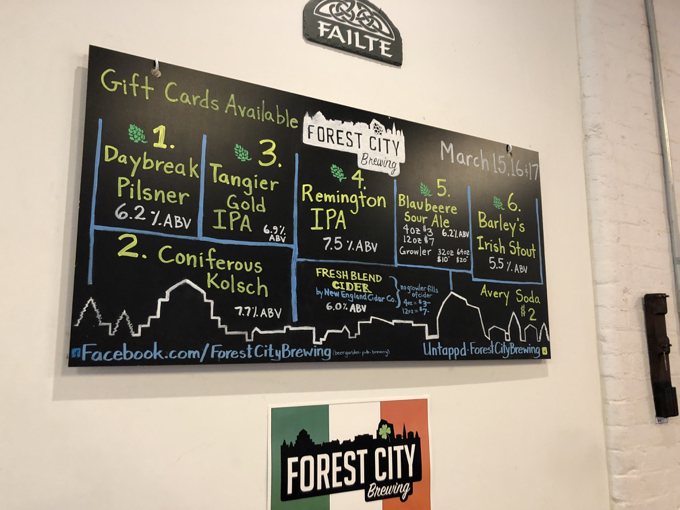 FAILTE
Gift Cards Available
FOREST CITY
Brewing
March 15, 16 & 17
1.
Daybreak
Pilsner
6.2% ABV
3.
Tangier
Gold
IPA
6.9%
ABV
4.
Remington
IPA
7.5% ABV
5.
Blaubeere
Sour Ale
4oz $3 6.2% ABV
12oz $7
Growler 32oz 64oz
$10 $20
6.
Barley's
Irish Stout
5.5% ABV
2. Coniferous
Kolsch
7.7% ABV
FRESH BLEND
CIDER
by New England Cider Co.
6.0% ABV
no growler fills
of cider
4oz = $3
12oz = $7
Avery Soda
$2
Facebook.com/ForestCityBrewing
Untappd-ForestCityBrewing
FOREST CITY
Brewing